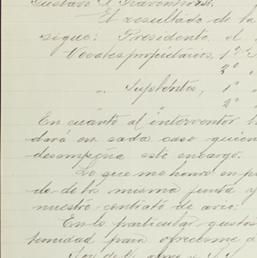 Gustavo A. Fraventros.
El resultado de la
sigue: Presidente el
Vocales propietarios, 1º
2º
" Suplentes, 1º "
2º "
En cuanto al interventor
dará en cada caso quien
desempeña este encargo.
Lo que me honro en
de de la misma junta y
nuestro contrato de avío.
En lo particular gustoso
tunidad para ofrecerme a